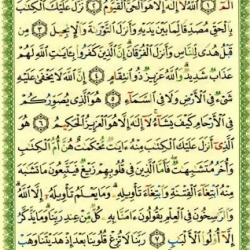 الٓمٓ ١ ٱللَّهُ لَآ إِلَٰهَ إِلَّا هُوَ ٱلْحَىُّ ٱلْقَيُّومُ ٢ نَزَّلَ عَلَيْكَ ٱلْكِتَٰبَ
بِٱلْحَقِّ مُصَدِّقًا لِّمَا بَيْنَ يَدَيْهِ وَأَنزَلَ ٱلتَّوْرَىٰةَ وَٱلْإِنجِيلَ ٣ مِن
قَبْلُ هُدًى لِّلنَّاسِ وَأَنزَلَ ٱلْفُرْقَانَ إِنَّ ٱلَّذِينَ كَفَرُوا۟ بِـَٔايَٰتِ ٱللَّهِ لَهُمْ
عَذَابٌ شَدِيدٌ وَٱللَّهُ عَزِيزٌ ذُو ٱنتِقَامٍ ٤ إِنَّ ٱللَّهَ لَا يَخْفَىٰ عَلَيْهِ
شَىْءٌ فِى ٱلْأَرْضِ وَلَا فِى ٱلسَّمَآءِ ٥ هُوَ ٱلَّذِى يُصَوِّرُكُمْ
فِى ٱلْأَرْحَامِ كَيْفَ يَشَآءُ لَآ إِلَٰهَ إِلَّا هُوَ ٱلْعَزِيزُ ٱلْحَكِيمُ ٦ هُوَ
ٱلَّذِىٓ أَنزَلَ عَلَيْكَ ٱلْكِتَٰبَ مِنْهُ ءَايَٰتٌ مُّحْكَمَٰتٌ هُنَّ أُمُّ ٱلْكِتَٰبِ
وَأُخَرُ مُتَشَٰبِهَٰتٌ فَأَمَّا ٱلَّذِينَ فِى قُلُوبِهِمْ زَيْغٌ فَيَتَّبِعُونَ مَا تَشَٰبَهَ
مِنْهُ ٱبْتِغَآءَ ٱلْفِتْنَةِ وَٱبْتِغَآءَ تَأْوِيلِهِۦ وَمَا يَعْلَمُ تَأْوِيلَهُۥٓ إِلَّا ٱللَّهُ
وَٱلرَّٰسِخُونَ فِى ٱلْعِلْمِ يَقُولُونَ ءَامَنَّا بِهِۦ كُلٌّ مِّنْ عِندِ رَبِّنَا وَمَا يَذَّكَّرُ
إِلَّآ أُو۟لُوا۟ ٱلْأَلْبَٰبِ ٧ رَبَّنَا لَا تُزِغْ قُلُوبَنَا بَعْدَ إِذْ هَدَيْتَنَا وَهَبْ